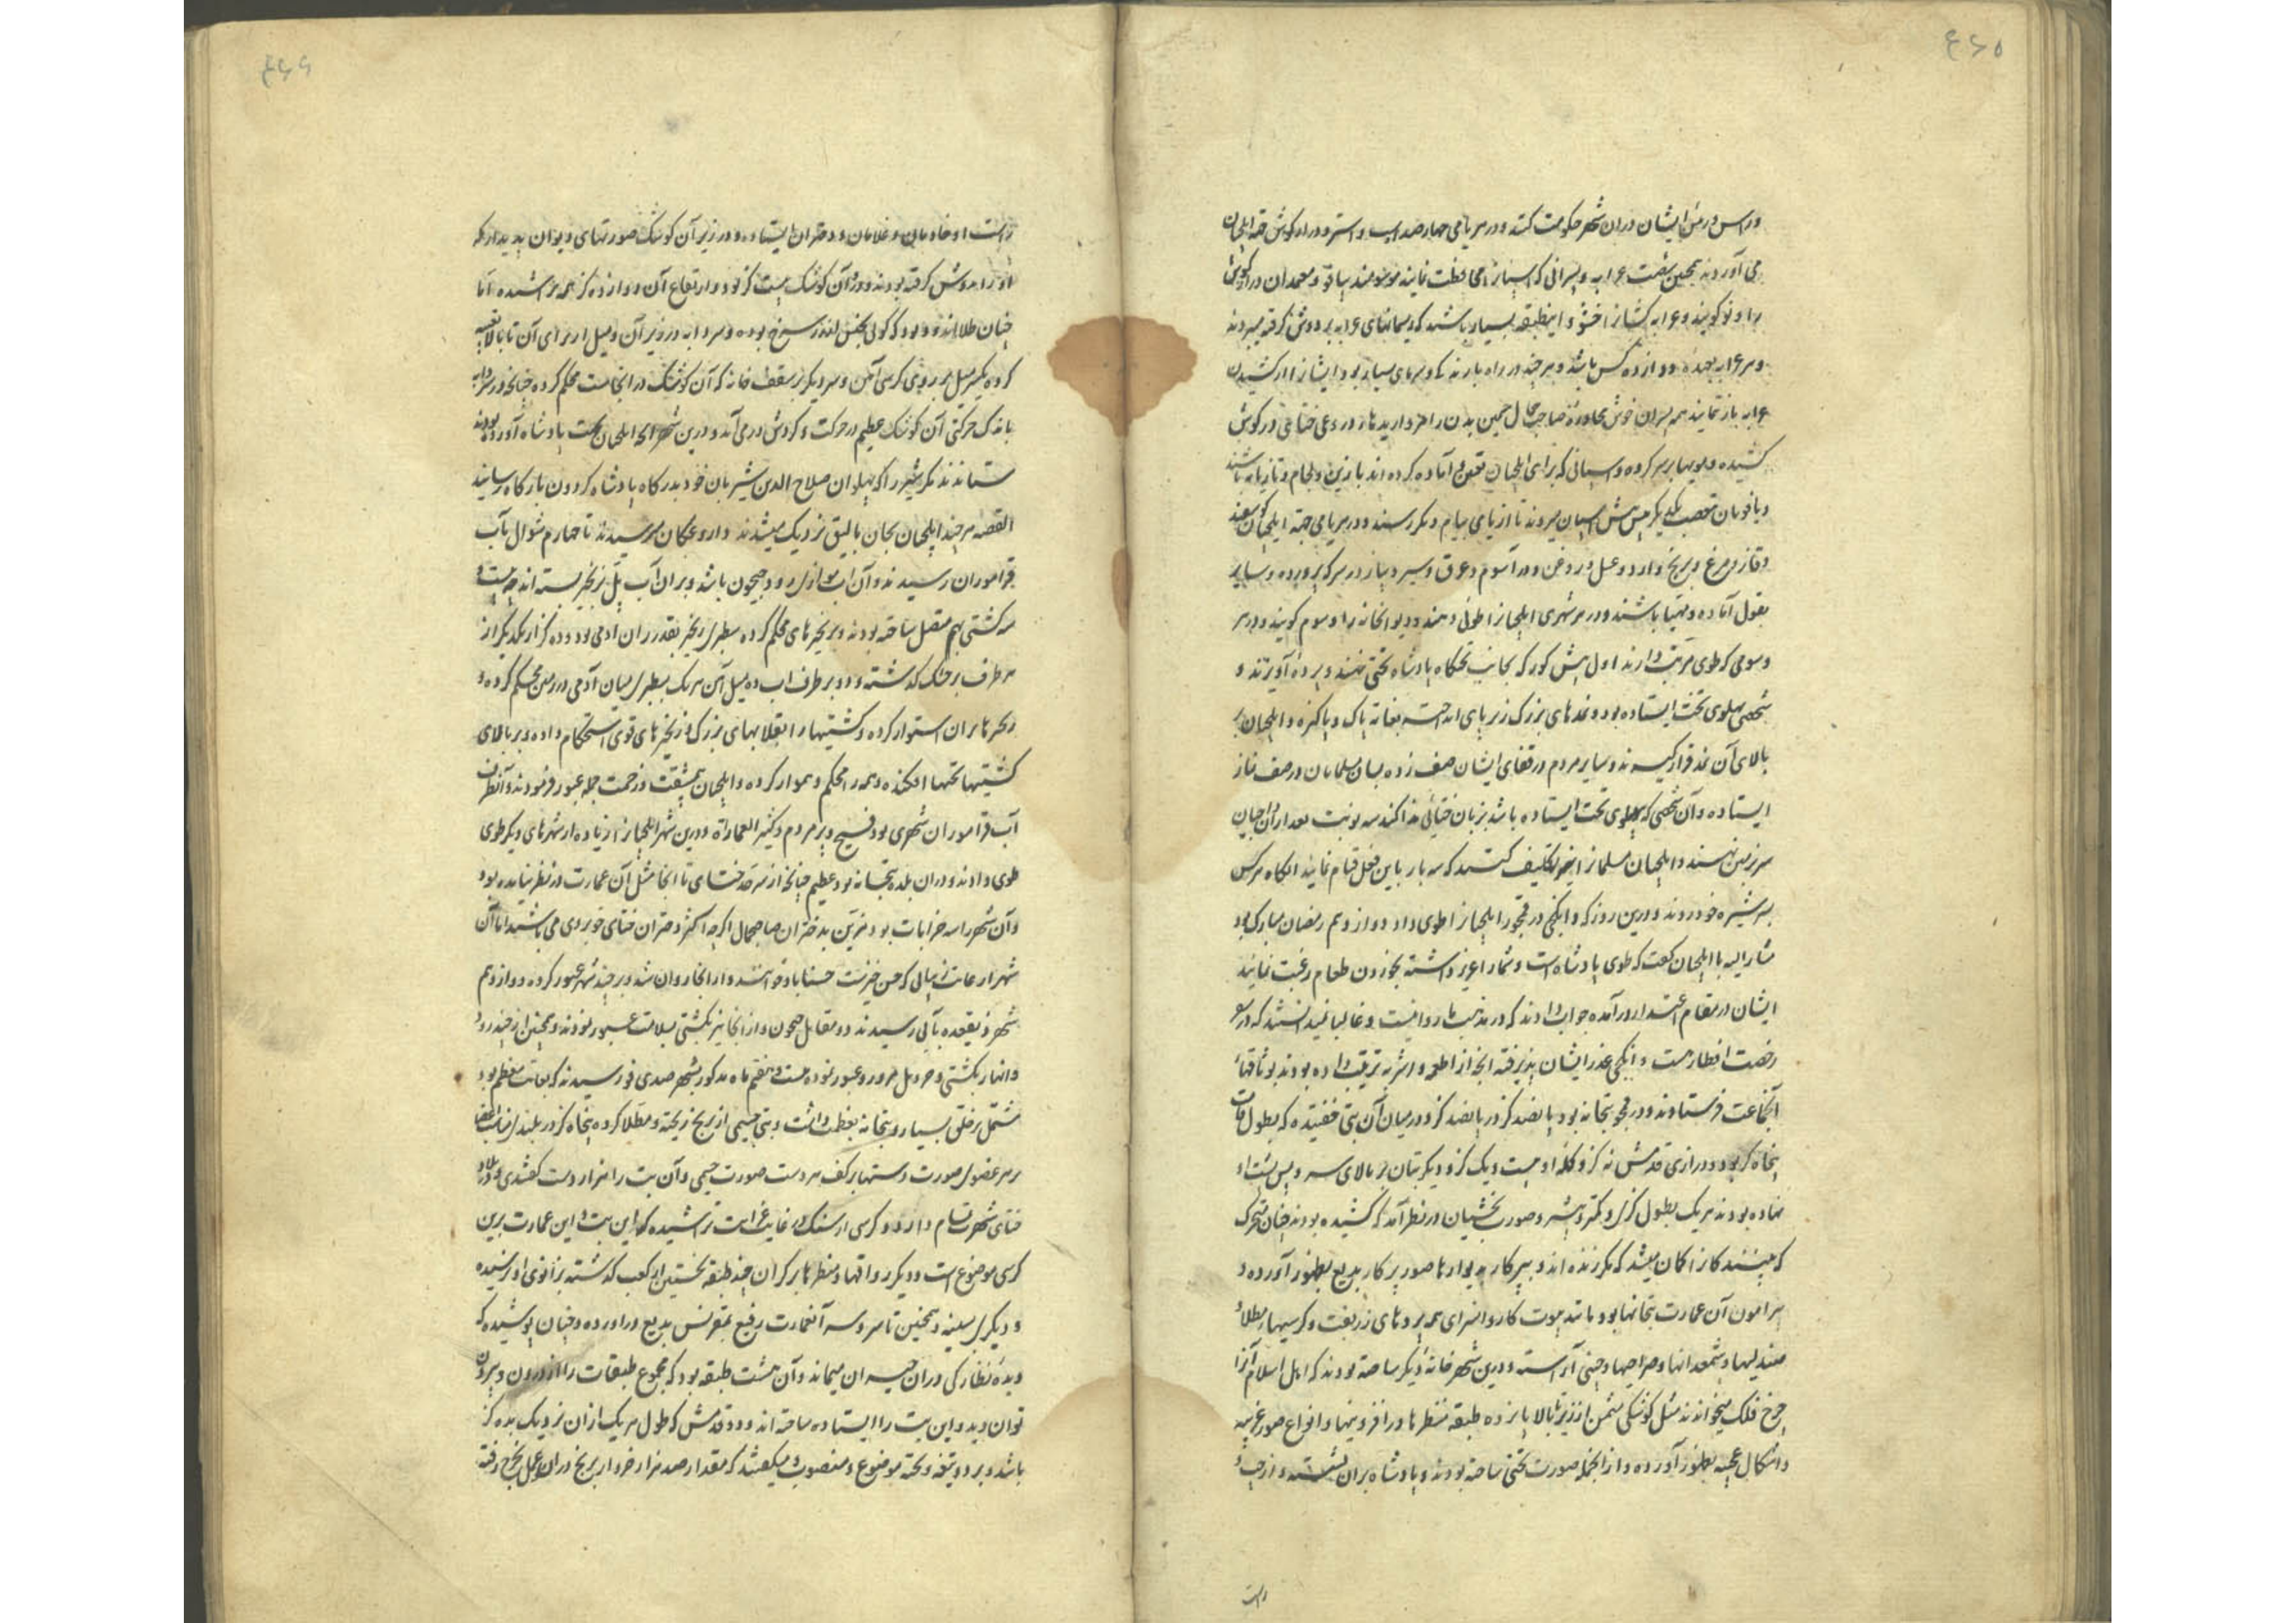 ۴۶۵
و راس و رئس ایشان دران شهر حکومت کند و در هر یامی چهارصد اسب و استر و دراز گوش جهة ایلچیان
می آوردند همچنین شصت عرابه و پسرانی که اسپانرا محافظت نمایند موسومند ببافو و معهدان دراز گوش
را لوفو گویند و عرابه کشانرا جنفو و این طبقه بسیار باشند که ریسمانهای عرابه بر دوش گرفته میبرند
و هر عرابه بعهده دوازده کس باشد و هر چند در راه بارندگی و سرمای بسیار بود ایشانرا از کشیدن
عرابه باز نمایند همه پسران خوش محاوره صاحب جمال چمین بدن مرواریدهاء دروغی ختایی در گوش
کشیده و مویها بر سر گره و اسپانی که برای ایلچیان تعیین و آماده کرده اند با زین و لجام و تازیانه باشند
و بافویان متعصب یکدیگر پیش پیش اسپان میروند تا از یامی بیام دیگر رسند و در هر یامی جهة ایلچیان گوسفند
و قاز و مرغ و برنج و آرد و عسل و در و غن و درآسوم و عرق و سیر و پیاز در سرکه پرورده و سایر
بقول آماده و مهیا باشند و در هر شهری ایلچیانرا طوی دهند و دیوانخانه را دوسوم گویند و در هر
دوسومی که طوی مرتب دارند اول پیش کورکه بجانب تختگاه پادشاه تختی نهند و پرده آویزند و
شخصی پهلوی تخت ایستاده بود و نمدهای بزرگ زیر پای انداخته بغایة پاک و پاکیزه و ایلچیان بر
بالای آن نمد قرار گیرند و سایر مردم در قفای ایشان صف زده بسان مسلمانان در صف نماز
ایستاده و آن شخصی که پهلوی تخت ایستاده باشد بزبان ختائی ندا کند سه نوبت بعد از آن ختاییان
سر بر زمین نهند و ایلچیان مسلمانرا نیز تکلیف کنند که سه بار باین فعل قیام نمایند آنگاه هر کس
بسر شیره خود روند و درین روز که وانکجی در قمجو ایلچیانرا طوی داد دوازدهم رمضان مبارک بود
مشار الیه با ایلچیان گفت که طوی پادشاه است و شما را عزیز داشته بخوردن طعام رغبت نمایند
ایشان در مقام اعتذار درآمده جواب دادند که در مذهب ما روا نیست و غالبا نمیدانستند که در سفر
رخصت افطار هست وانکجی عذر ایشان پذیرفته آنچه از اطعمه و اشربه ترتیب داده بودند بوثاقهاء
آنجماعت فرستادند و در قمجو بتخانه بود پانصد گز در پانصد گز و در میان آن بتی خفتیده که بطول قامت
پنجاه گز بود و درازی قدمش نه گز و کله او بیست و یک گز و دیگر بتان بر بالای سر و پس پشت او
نهاده بودند هر یک بطول گزی و کمتر و بیشتر و صورت بخشیان در نظر آمد که کشیده بودند چنان متحرک
که بینندگانرا گمان میشد که مگر زنده اند و سر کار بدیوارها صور پر کار بدیع بظهور آورده و
پیرامون آن عمارت بتخانها بود مانند بیوت کاروانسرای همه پردهای زربفت و کرسیهاء مطلاء
صندلیها و شمعدانها و صراحیها و چینی آراسته و درین شهر خانه دیگر ساخته بودند که اهل اسلام آنرا
چرخ فلک میخواندند مثل کوشکی مثمن از زیر تا بالا پانزده طبقه منظرها و در افزونها و انواع صور غریبه
و اشکال عجیبه بظهور آورده و از انجمله صورت تختی ساخته بودند و پادشاه بران نشسته و از چپ و
راست
۴۶۶
راست او خادمان و غلامان و دختران ایستاده و در زیر آن کوشک صورتهای دیوان پدیدار که
او را بدوش گرفته بودند و دور آن کوشک بیست گز بود و ارتفاع آن دوازده گز همه تراشیده اما
چنان طلا اندود بود که گوئی بجنس از زر سرخ بوده و سردابه در زیر آن و میل از برای آن تا بالا تعبیه
کرده یکسر میل بر روی کرسی آهن و سر دیگر بر سقف خانه که آن کوشک در انجاست محکم کرده چنانچه در سردابه
باندک حرکتی آن کوشک عظیم در حرکت و گردش در می آید و درین شهر آنچه ایلچیان بجهت پادشاه آورده بودند
ستاندند مگر شیر را که پهلوان صلاح الدین شیربان خود بدرگاه پادشاه گردون بارگاه رسانید
القصه هر چند ایلچیان بخان بالیق نزدیک میشدند داروغگان میرسیدند تا چهارم شوال بآب
قراموران رسیدند و آن آب موازی رود جیحون باشد و بران آب پلی ز زنجیر بسته اند چه بیست و
سه کشتی بهم متصل ساخته بودند و بزنجیرهای محکم کرده بسطبری زنجیر بقدر ران آدمی بود و ده گز از یکدیگر از
هر طرف بر خشک گذشته و دو بر طرف آب ده میل آهن هر یک بسطبری میان آدمی در زمین محکم کرده و
زنجیرها بران استوار کرده و کشتیها را بقلابهای بزرگ و زنجیرهای قوی استحکام داده و بر بالای
کشتیها تختها افکنده و همه را محکم و هموار کرده و ایلچیان بی مشقت و زحمت جمله عبور فرمودند و آنطرف
آب قراموران شهری بود فسیح و پر مردم و کثیر العماراة و درین شهر ایلچیانرا زیاده از شهرهای دیگر طوی
طوی دادند و دران بلده بتخانه بود عظیم چنانچه از سرحد ختای تا انجا مثل آن عمارت در نظر نیامده بود
و آن شهر را سه خرابات بود مزین بدختران صاحبجمال اگرچه اکثر دختران ختای خوبروی می باشند اما آن
شهر از غایت زیبائی که حسن خیزست حسناباد خوانند و از انجا روان شد و بر چند شهر عبور کرده دوازدهم
شهر ذیقعده بآبی رسیدند دو مقابل جیحون و از انجا نیز بکشتی بسلامت عبور نمودند و همچنین از چند رود
و انهار بکشتی و جر و پل مرور و عبور نموده بیست و هفتم ماه مذکور بشهر صدی فو رسیدند که بغایت معظم بود
مشتمل بر خلقی بسیار و بتخانه بعظمت داشت و بتی جسیمی از برنج ریخته و مطلا کرده پنجاه گز در بلندی متناسب الاعضا
بر هر عضوی صورت دستها بر کف هر دست صورت چشمی و آن بت را هزار دست گفتندی و در بلاد
ختای شهرت تمام دارد و کرسی از سنگ در غایت غرابت تراشیده که این بت و این عمارت برین
کرسی موضوع است و دیگر رواقها و منظرها بر گران چند طبقه نخستین از کعب گذشته بزانوی او رسیده
و دیگری بسینه و همچنین تا سر و سر آنعمارت رفیع بمقرنس بدیع در آورده و چنان پوشیده که
دیده نظارگی دران حیران میماند و آن هشت طبقه بود که مجموع طبقات را از درون و بیرون
توان دید و این بت را ایستاده ساخته اند و دو قدمش که طول هر یک از ان نزدیک بده گز
باشد و بر دو تیغه ریخته موضوع و منصوب و میگفتند که مقدار صد هزار خروار برنج دران عمل بخرج رفته